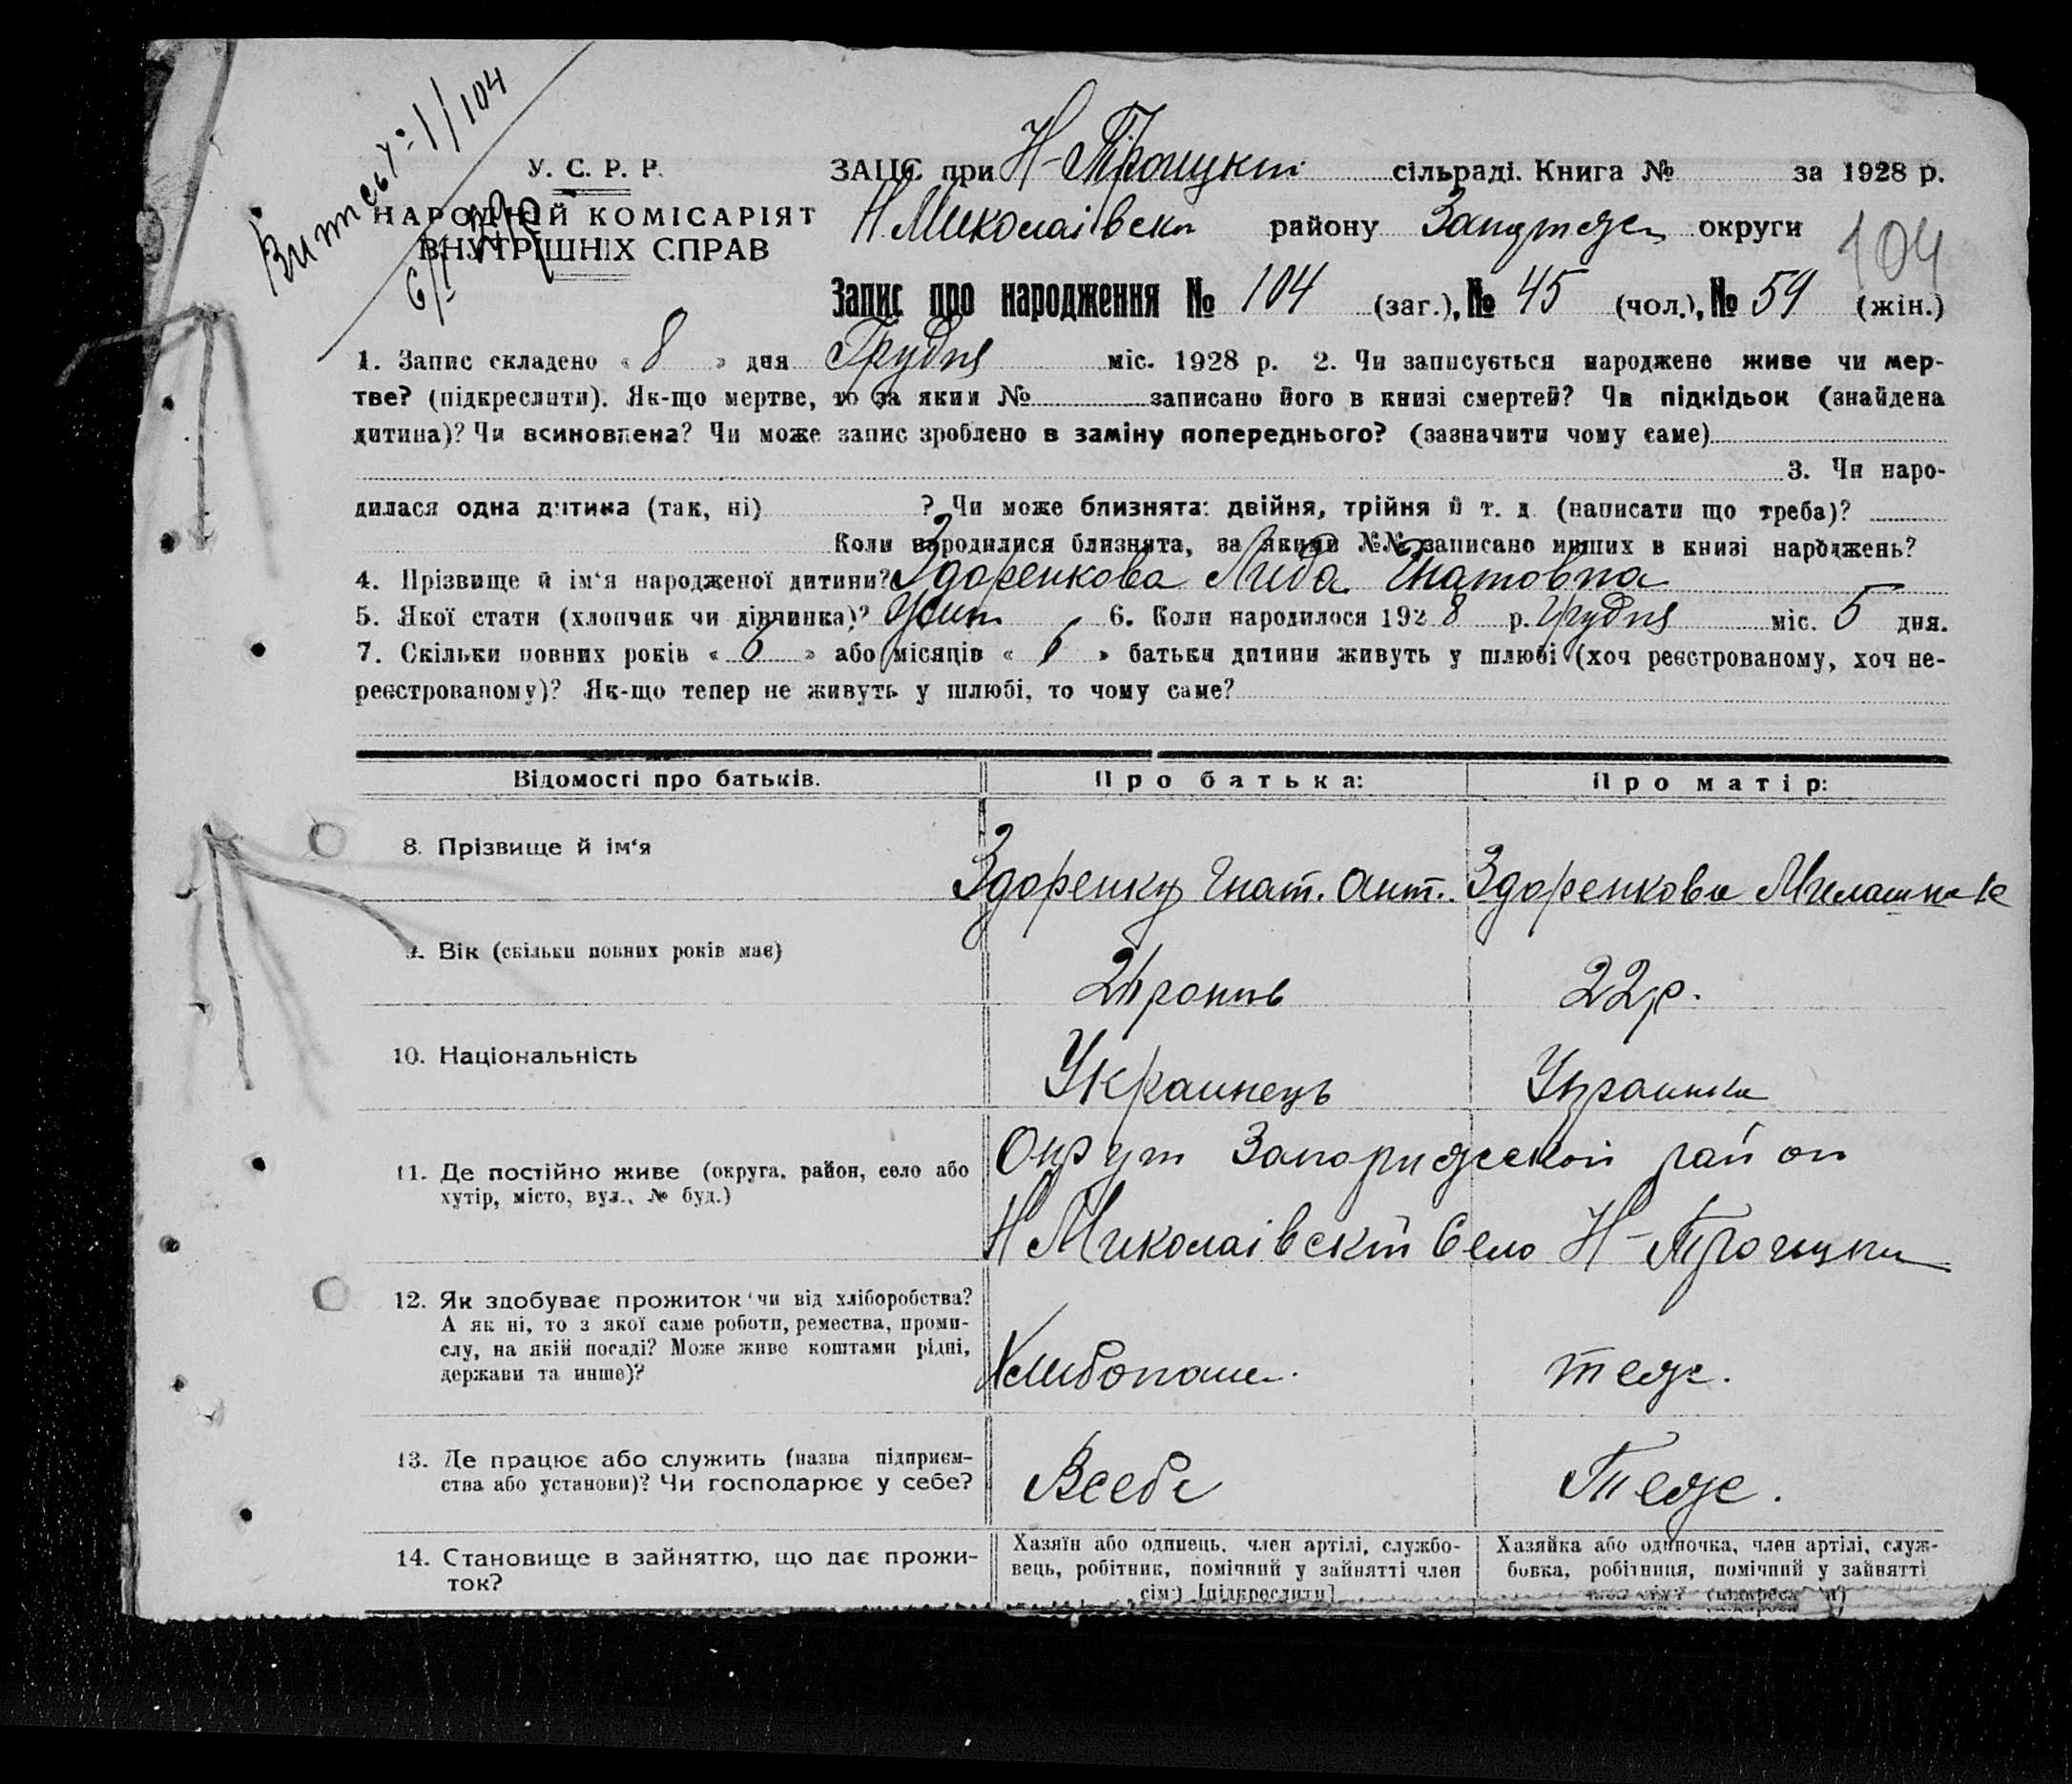 Витяг у: 1/104
У. С. Р. Р.
НАРОДНІЙ КОМІСАРІЯТ
ВНУТРІШНІХ СПРАВ
ЗАЦС при Н-Троицкій сільраді. Книга № за 1928 р.
Н.Миколаівськ району округи
104
Запис про народження № 104 (заг.), № 45 (чол.), № 59 (жін.)
1. Запис складено « 8 » дня Грудня міс. 1928 р. 2. Чи записується народжене живе чи мер-
тве? (підкреслити). Як-що мертве, то за яким № записано його в книзі смертей? Чи підкідьок (знайдена
дитина)? Чи всиновлена? Чи може запис зроблено в заміну попереднього? (зазначити чому саме)
3. Чи наро-
дилася одна дитина (так, ні) ? Чи може близнята: двійня, трійня й т. д. (написати що треба)?
Коли народилися близнята, за якими №№ записано инших в книзі народжень?
4. Прізвище й ім'я народженої дитини? Здоренкова Лида Гнатовна
5. Якої стати (хлопчик чи дівчинка)? 6. Коли народилося 1928 р. Грудня міс. 5 дня.
7. Скільки повних років « 6 » або місяців « » батьки дитини живуть у шлюбі (хоч реєстрованому, хоч не-
реєстрованому)? Як-що тепер не живуть у шлюбі, то чому саме?
Відомості про батьків. Про батька: Про матір:
8. Прізвище й ім'я Здоренку Гнат. Ант. Здоренкова
9. Вік (скільки повних років має) роцив 22 р.
10. Національність Украинець Украинка
11. Де постійно живе (округа, район, село або
хутір, місто, вул., № буд.)
Округ район
Н Миколаівскій Село Н-Троицки
12. Як здобуває прожиток чи від хліборобства?
А як ні, то з якої саме роботи, ремества, проми-
слу, на якій посаді? Може живе коштами рідні,
держави та инше)?
Хлибопаш. теж.
13. Де працює або служить (назва підприєм-
ства або установи)? Чи господарює у себе?
Всебе Теже.
14. Становище в зайняттю, що дає прожи-
ток?
Хазяїн або одинець, член артілі, службо-
вець, робітник, помічний у зайнятті член
сім'ї [підкреслити]
Хазяйка або одиночка, член артілі, служ-
бовка, робітниця, помічний у зайнятті